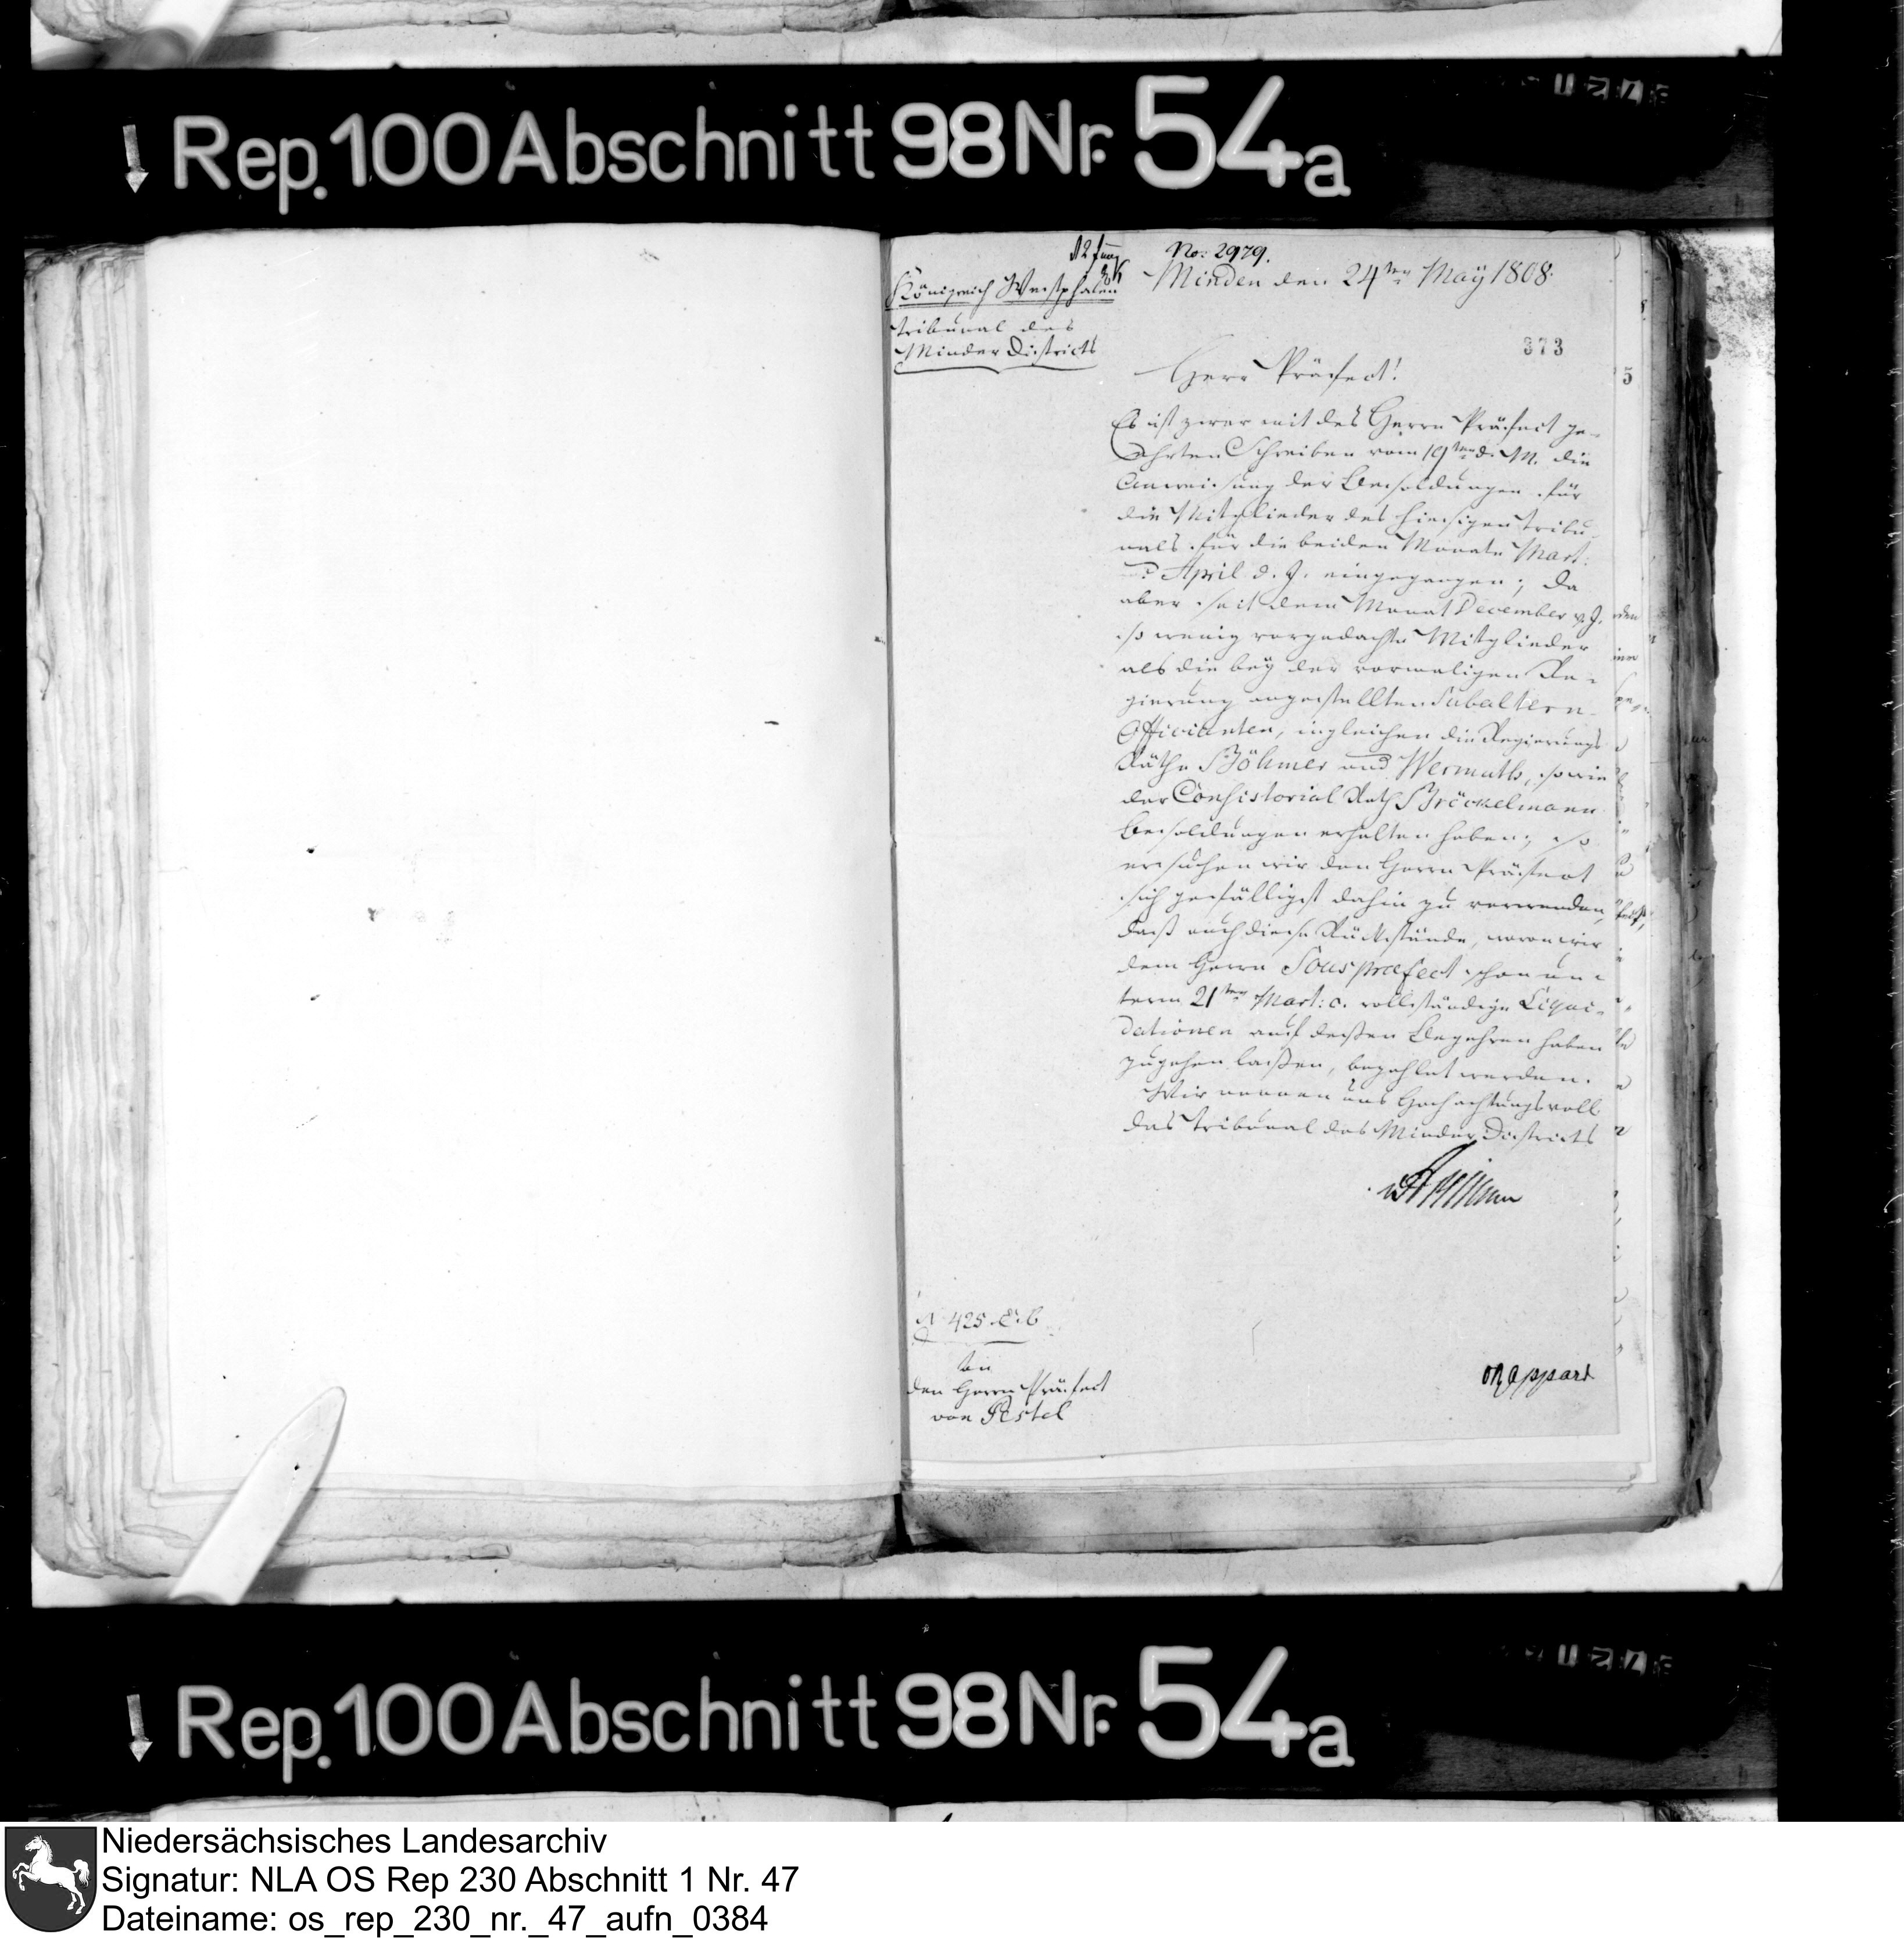 Rep. 100 Abschnitt 98 Nr. 54a
No: 2979.
Königreich Westphalen
Tribunal des
Minder Districts
Minden den 24ten May 1808.
373
Herr Präfect!
Es ist zwar mit des Herrn Präfect ge-
Ehrten Schreiben vom 19ten d. M. die
Anweisung der Besoldungen für
die Mitglieder des hiesigen Tribu-
nals für die beiden Monate Mart:
April d. J. eingegangen; da
aber seit dem Monat December v. J.
so wenig vorgedachte Mitglieder
als die bey der vormaligen Re-
gierung angestellten Subaltern-
Officianten, ingleichen die Regierungs
Räthe Böhmer und Wermuth, so wie
der Consistorial Rath Bröckelmann
Besoldungen erhalten haben; so
ersuchen wir den Herrn Präfect
sich gefälligst dahin zu verwenden,
daß auch diese Rückstände, wovon wir
dem Herrn Souspraefect schon un-
term 21ten Mart: c. vollständige Liqui-
dationen auf deßen Begehren haben
zugehen laßen, bezahlet werden.
Wir nennen uns Hochachtungsvoll
das Tribunal des Minder Districts
425
An
den Herrn Präfect
von Pestel
Rappard
Rep. 100 Abschnitt 98 Nr. 54a
Niedersächsisches Landesarchiv
Signatur: NLA OS Rep 230 Abschnitt 1 Nr. 47
Dateiname: os_rep_230_nr._47_aufn_0384